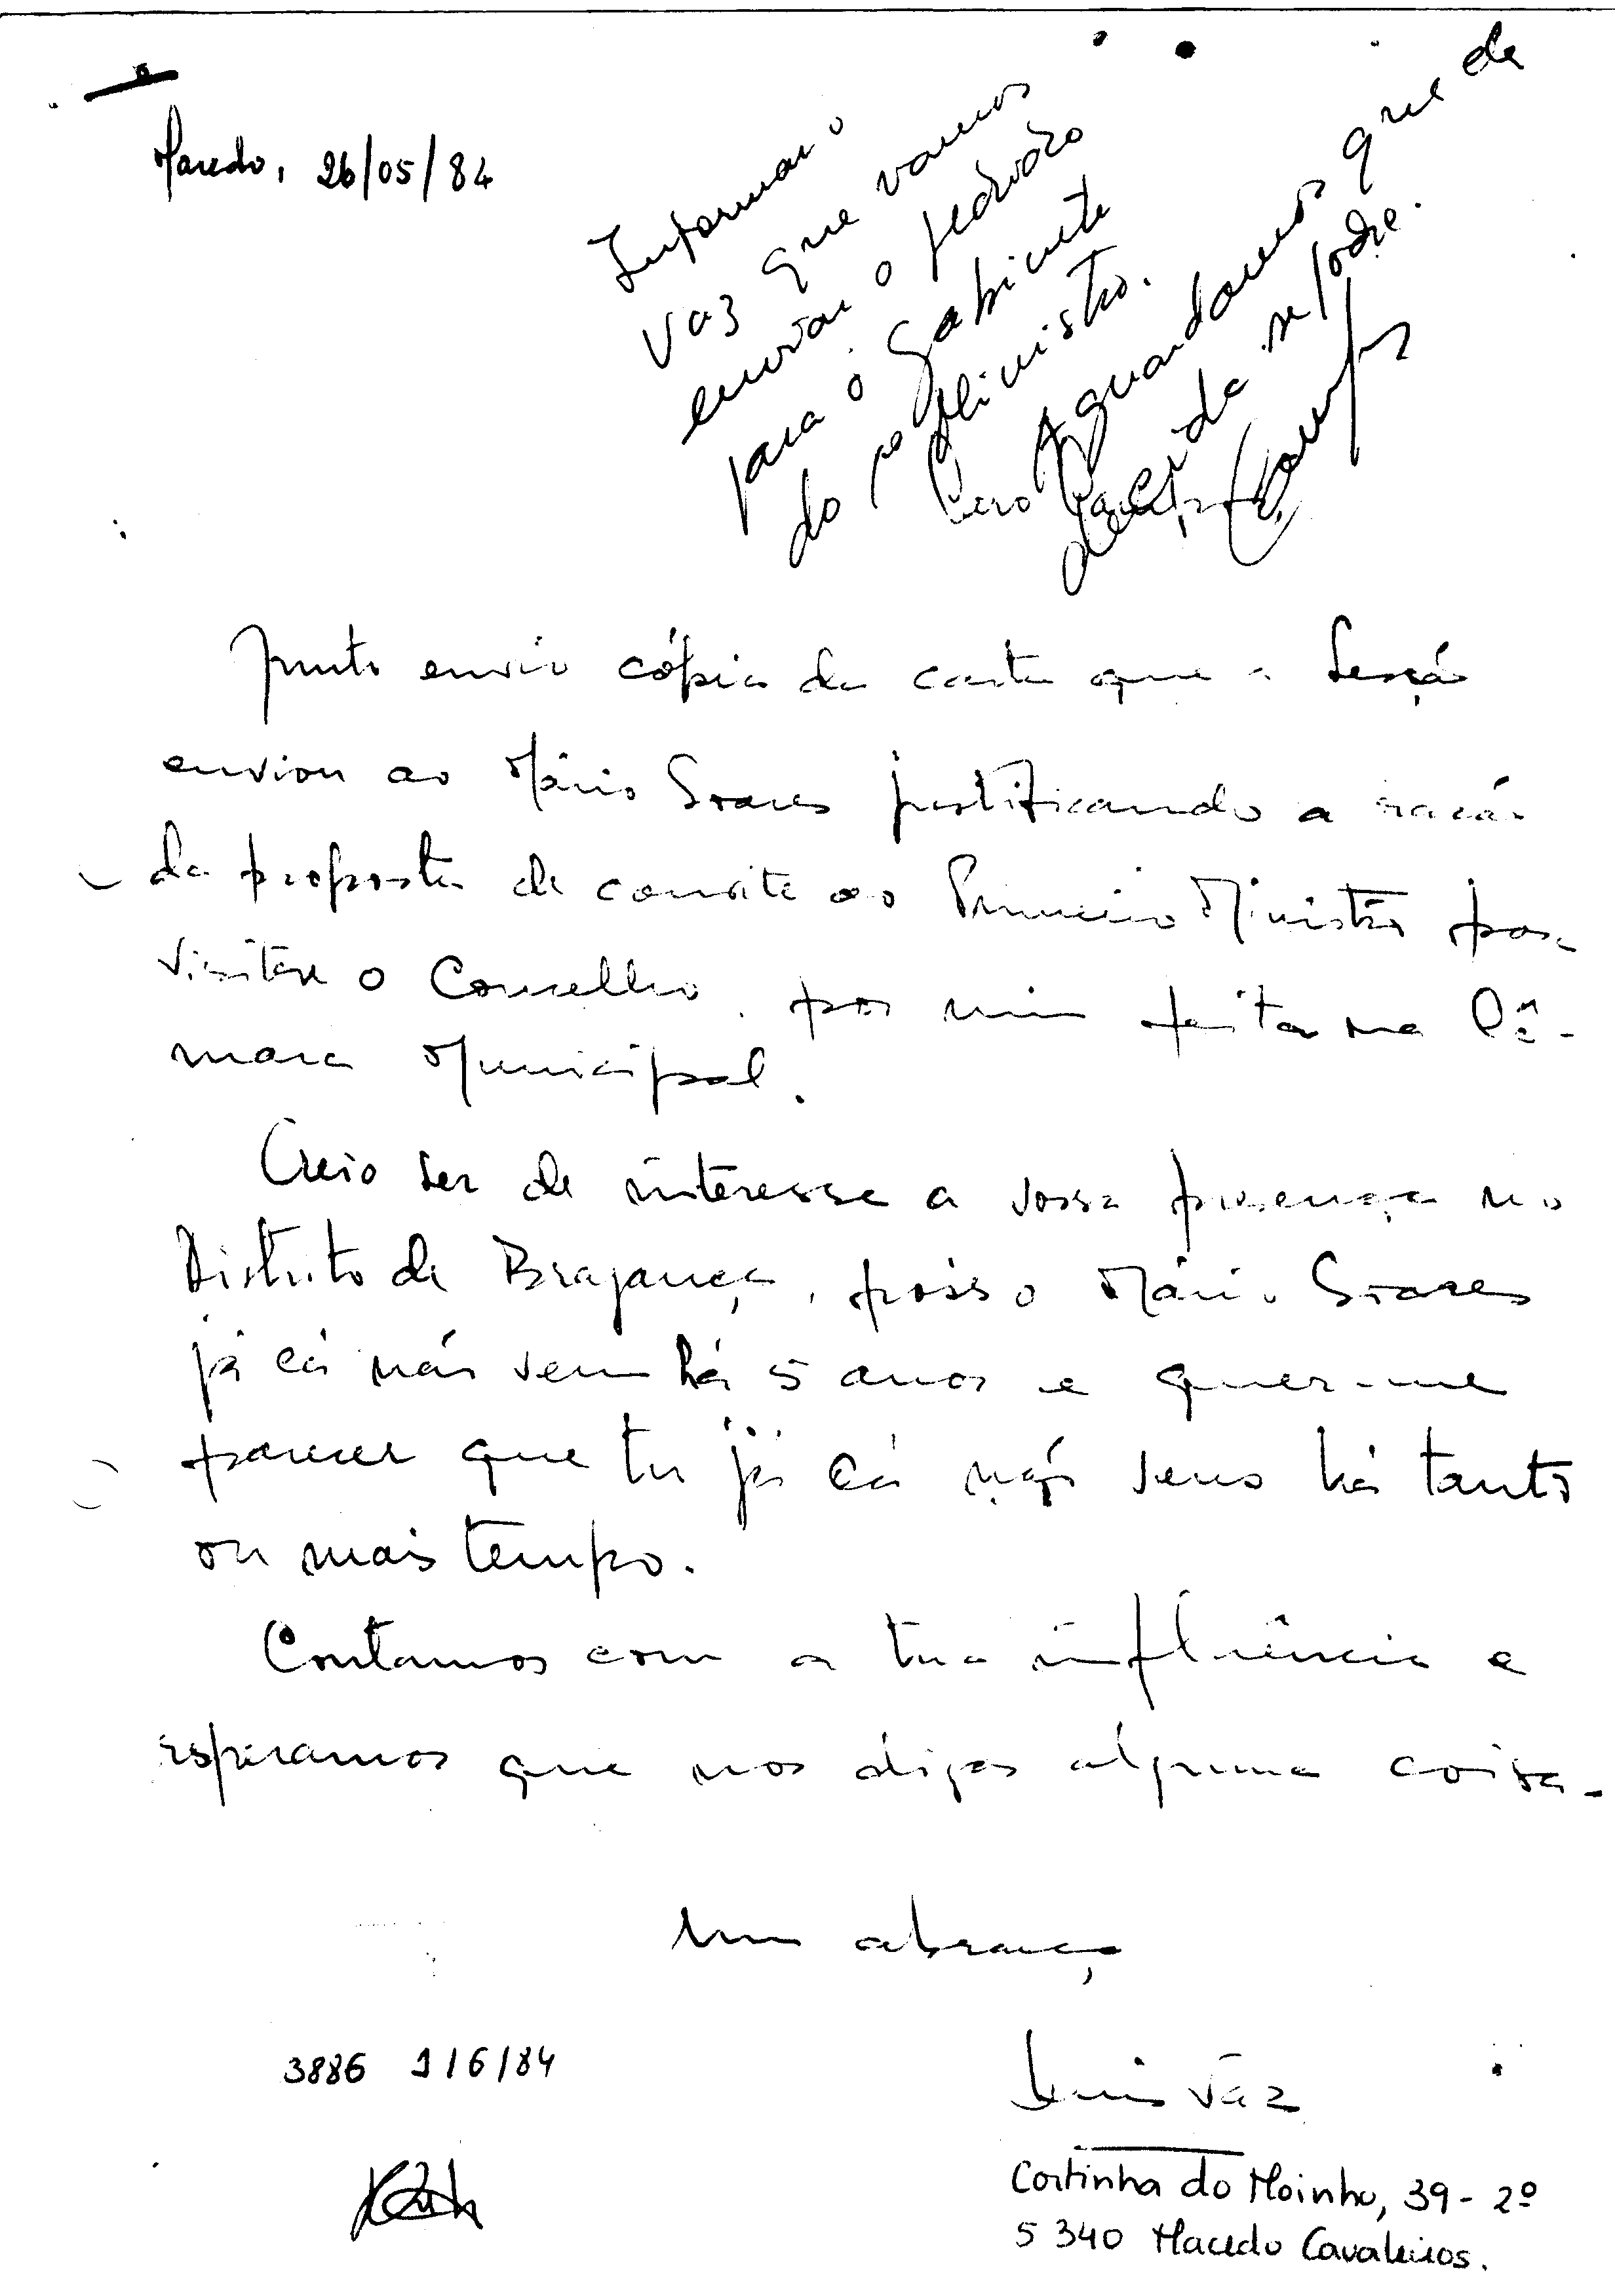 Macedo, 26/05/84
Informar o
Vaz que vamos
enviar o pedido
para o Gabinete
do 1º Ministro.
Aguardamos que de
lá decida se pode.
Junto envio cópia da carta que a Secção
enviou ao Mário Soares justificando a razão
da proposta de convite ao Primeiro Ministro para
visitar o Concelho, por mim feita na Câ-
mara Municipal.
Creio ser de interesse a vossa presença no
Distrito de Bragança, pois o Mário Soares
já cá não vem há 5 anos e quer-me
parecer que tu já cá não vens há tanto
ou mais tempo.
Contamos com a tua influência e
esperamos que nos digas alguma coisa.
Um abraço
Luis Vaz
Cortinha do Moinho, 39 - 2º
5340 Macedo Cavaleiros.
3886 1/6/84